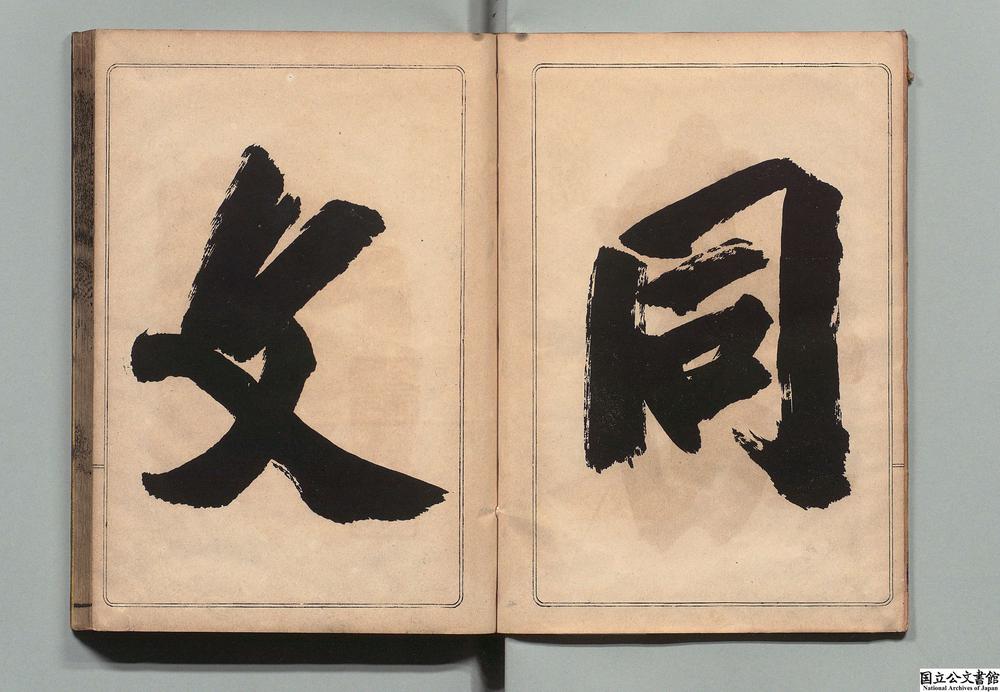 同
文
国立公文書館
National Archives of Japan